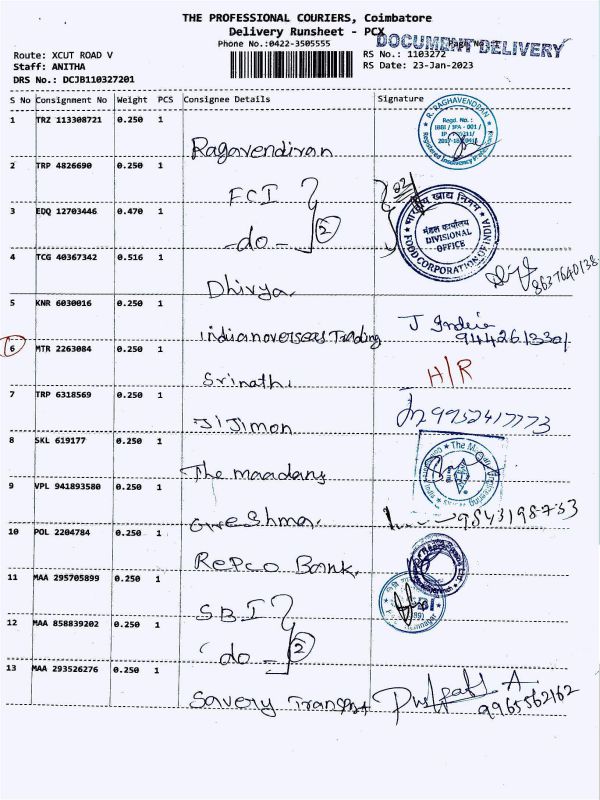 THE PROFESSIONAL COURIERS, Coimbatore
Delivery Runsheet - PCX
DOCUMENT DELIVERY
Phone No.:0422-3505555
Route: XCUT ROAD V
RS No.: 1103272
Staff: ANITHA
RS Date: 23-Jan-2023
DRS No.: DCJB110327201
S No Consignment No Weight PCS Consignee Details Signature
1 TRZ 113308721 0.250 1 Ragavendiran
R. RAGHAVENDRAN
Regd. No. :
IBBI / IPA - 001 /
Registered Insolvency Professional
2 TRP 4826690 0.250 1 FCI
02
3 EDQ 12703446 0.470 1 -do- 2
भारतीय खाद्य निगम
मंडल कार्यालय
DIVISIONAL
OFFICE
FOOD CORPORATION OF INDIA
4 TCG 40367342 0.516 1 Dhivya
8637640138
5 KNR 6030016 0.250 1 Indianoverseas Trading
J Indira
9442613301
6 MTR 2263084 0.250 1 Srinath.
H/R
7 TRP 6318569 0.250 1 Jijimon
9952417773
8 SKL 619177 0.250 1 The maadans
9 VPL 941893580 0.250 1 Greeshma.
9843198733
10 POL 2204784 0.250 1 Repco Bank.
11 MAA 295705899 0.250 1 SBI
12 MAA 858839202 0.250 1 do - 2
13 MAA 293526276 0.250 1 Savery Transport
A
9965562162